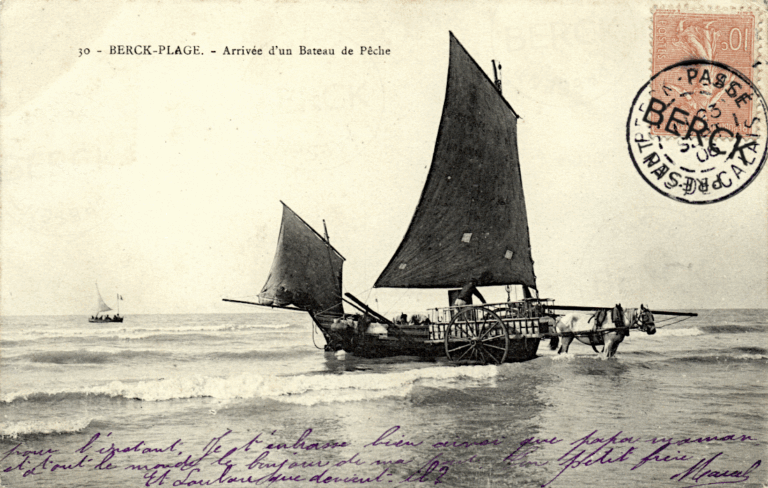 30 - BERCK-PLAGE. - Arrivée d'un Bateau de Pêche
10
PAS
BERCK
PAS-DE-CALAIS
pour l'instant. Je t'embrasse bien ainsi que papa maman
et tout le monde. Le bonjour de ma à ton petit frère
Et Louloute que devient-il? Marcel